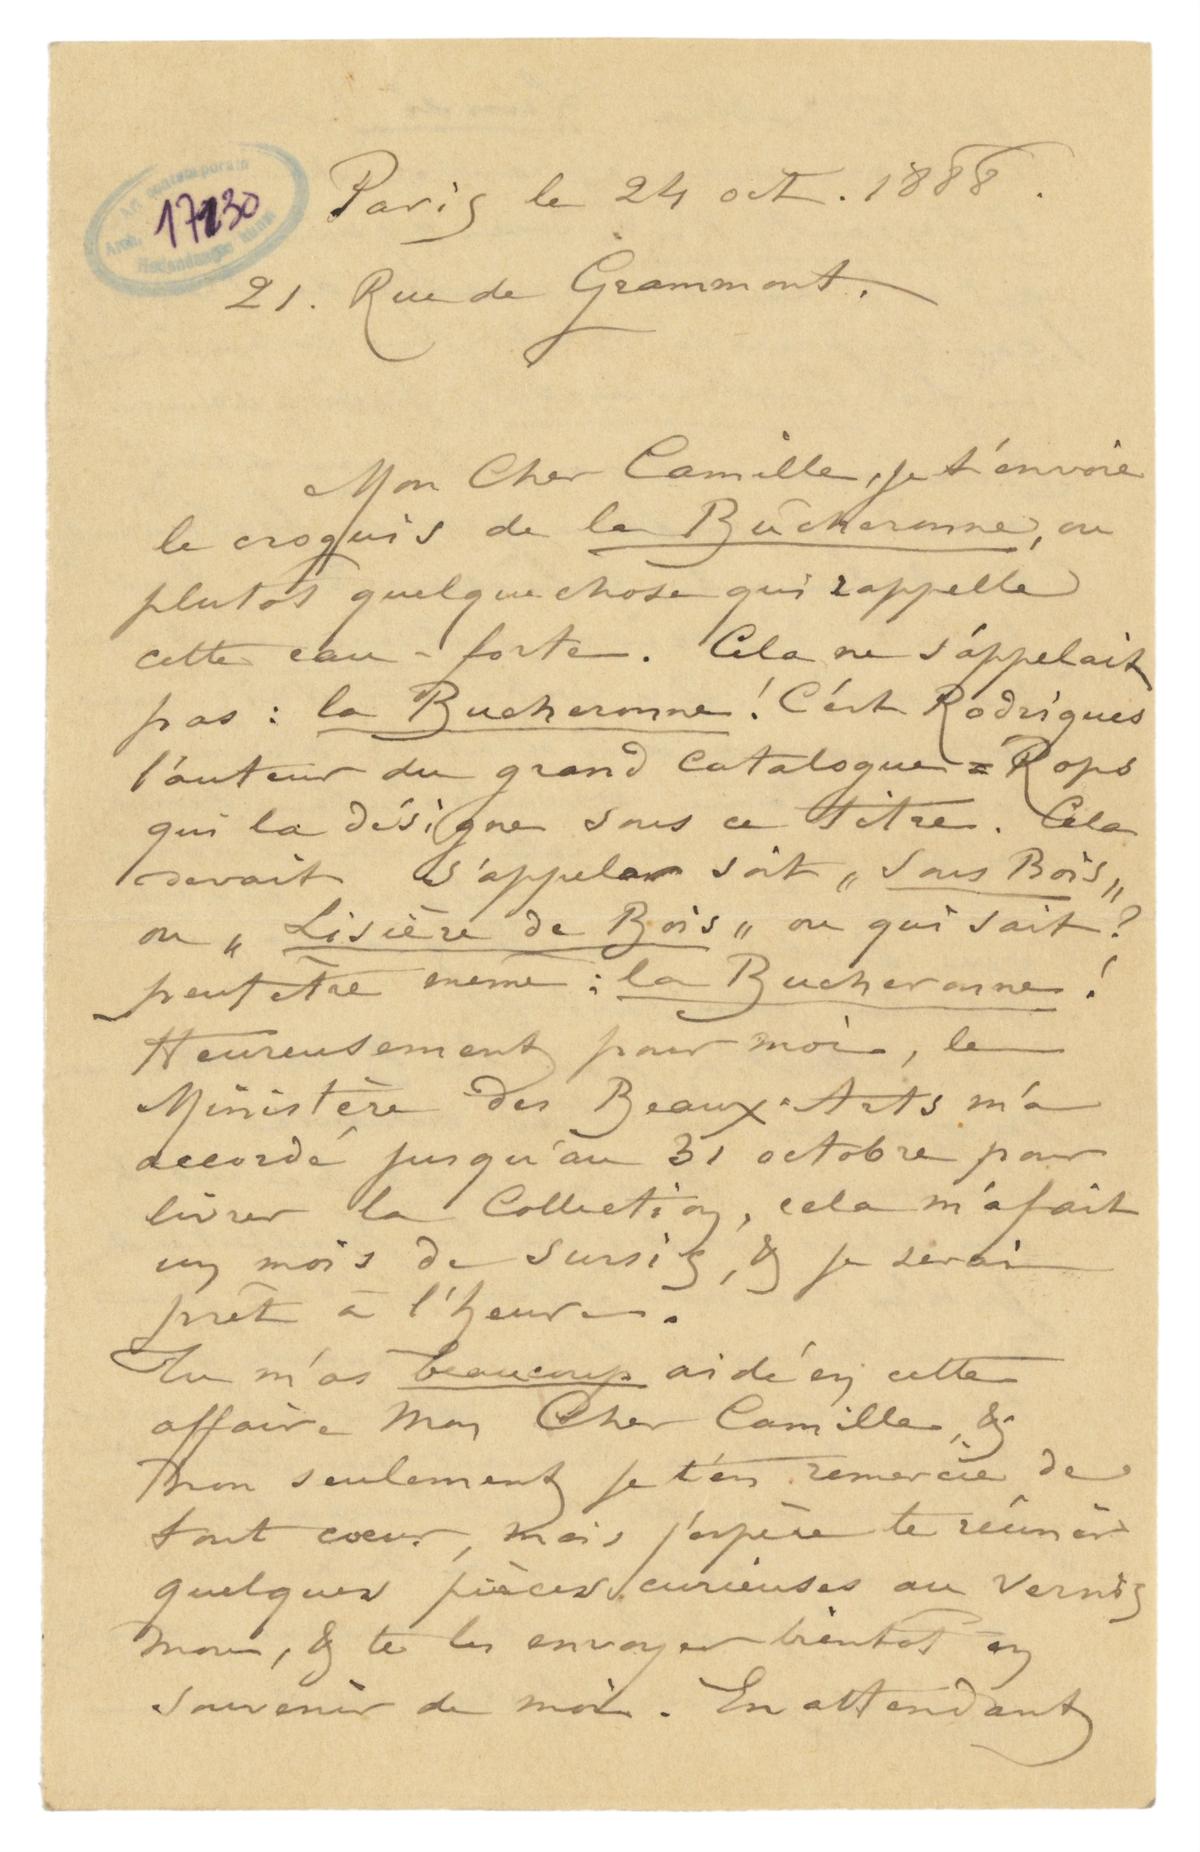 Arch. Art contemporain
17230
Paris le 24 oct. 1888.
21. Rue de Grammont.
Mon Cher Camille, je t'envoie
le croquis de la Bûcheronne, ou
plutot quelque chose qui rappelle
cette eau-forte. Cela ne s'appelait
pas : la Bucheronne ! C'est Rodrigues
l'auteur du grand catalogue = Rops
qui la désigne sous ce titre. Cela
devait s'appeler soit „ Sous Bois „
ou „ Lisière de Bois „ ou qui sait ?
peut être meme : la Bucheronne !
Heureusement pour moi, le
Ministère des Beaux-Arts m'a
accordé jusqu'au 31 octobre pour
livrer la Collection, cela m'a fait
un mois de sursis, & je serai
prêt à l'heure.
Tu m'as beaucoup aidé en cette
affaire Mon Cher Camille, &
non seulement je t'en remercie de
tout coeur, mais j'espère te réunir
quelques pièces curieuses au vernis
mou, & te les envoyer bientot en
souvenir de moi. En attendant